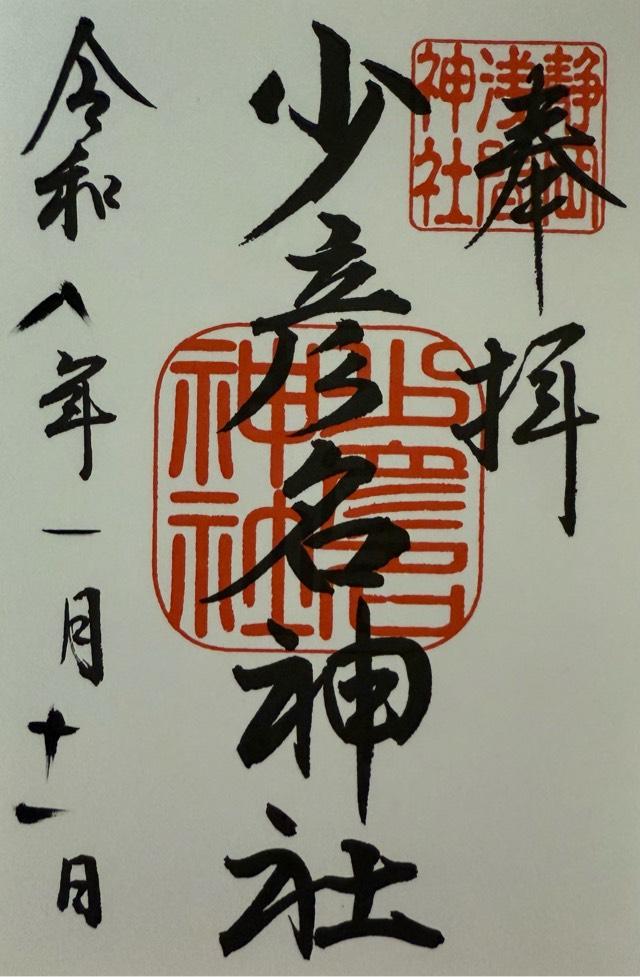 奉拝
静岡
浅間
神社
少彦名神社
少彦名
神社
令和八年一月十一日